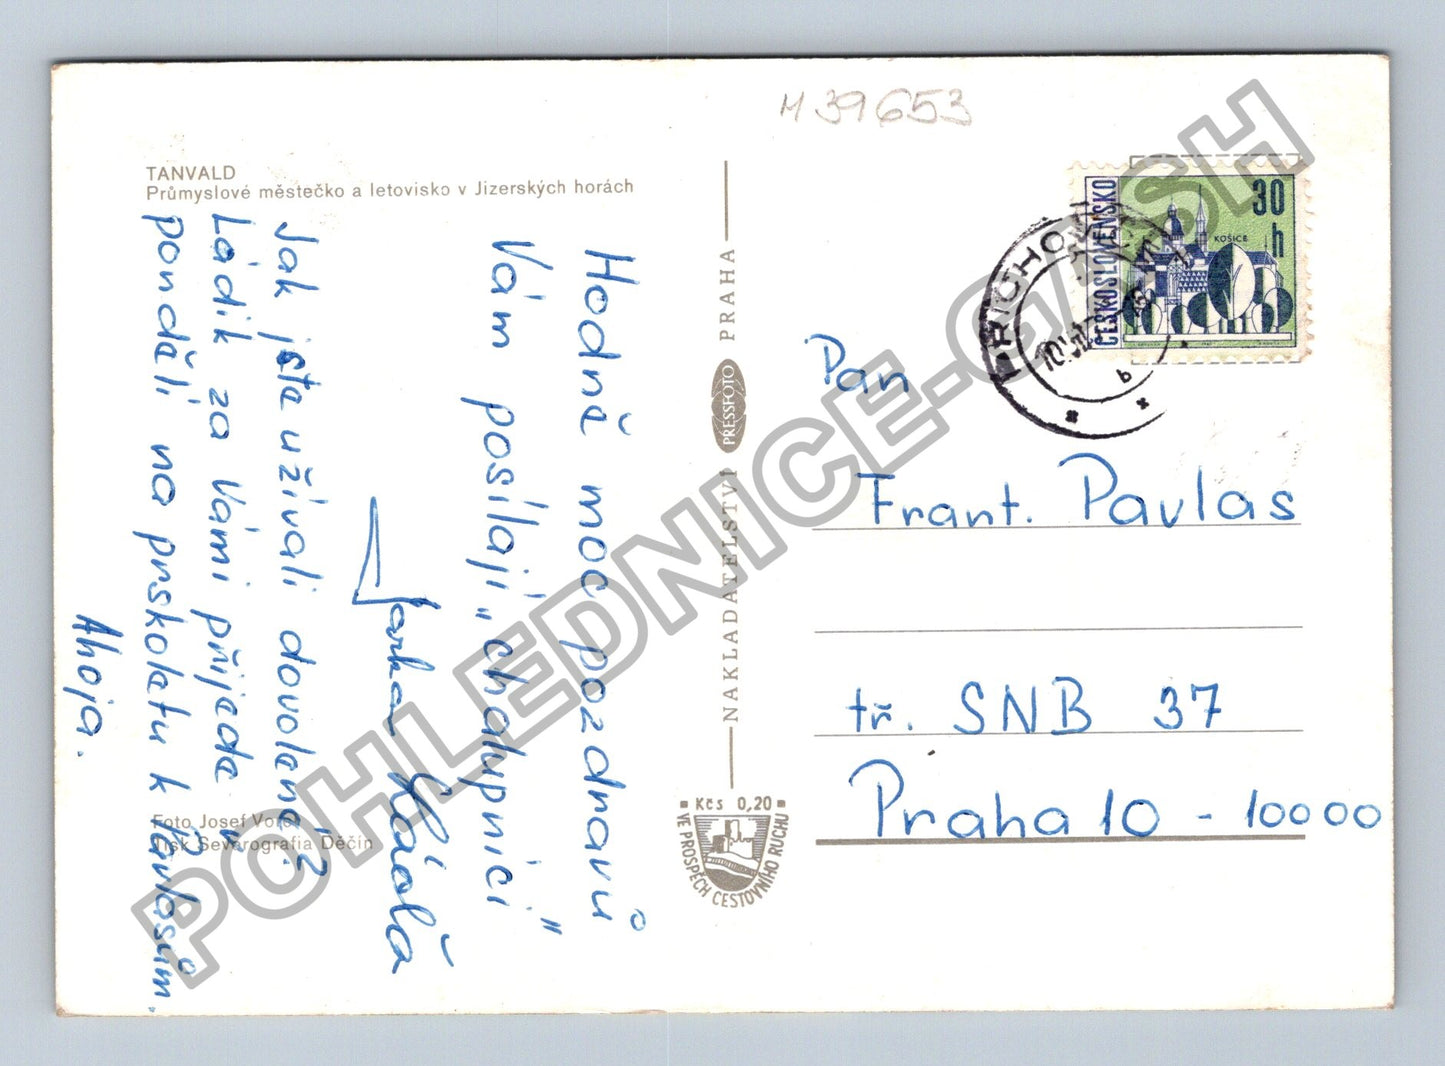 M 39653
TANVALD
Průmyslové městečko a letovisko v Jizerských horách
Hodně moc pozdravů
Vám posílají „chalupníci“
Jak jste užívali dovolené?
Láďík za Vámi přijede v
pondělí na prskolatu k Pavlasům.
Ahoja.
Foto Josef
Tisk Severografia Děčín
NAKLADATELSTVÍ PRESSFOTO PRAHA
Kčs 0,20
VE PROSPĚCH CESTOVNÍHO RUCHU
ČESKOSLOVENSKO
30 h
KOŠICE
PŘICHOVICE
b
Pan
Frant. Pavlas
tř. SNB 37
Praha 10 - 10000
POHLEDNICE-GASH